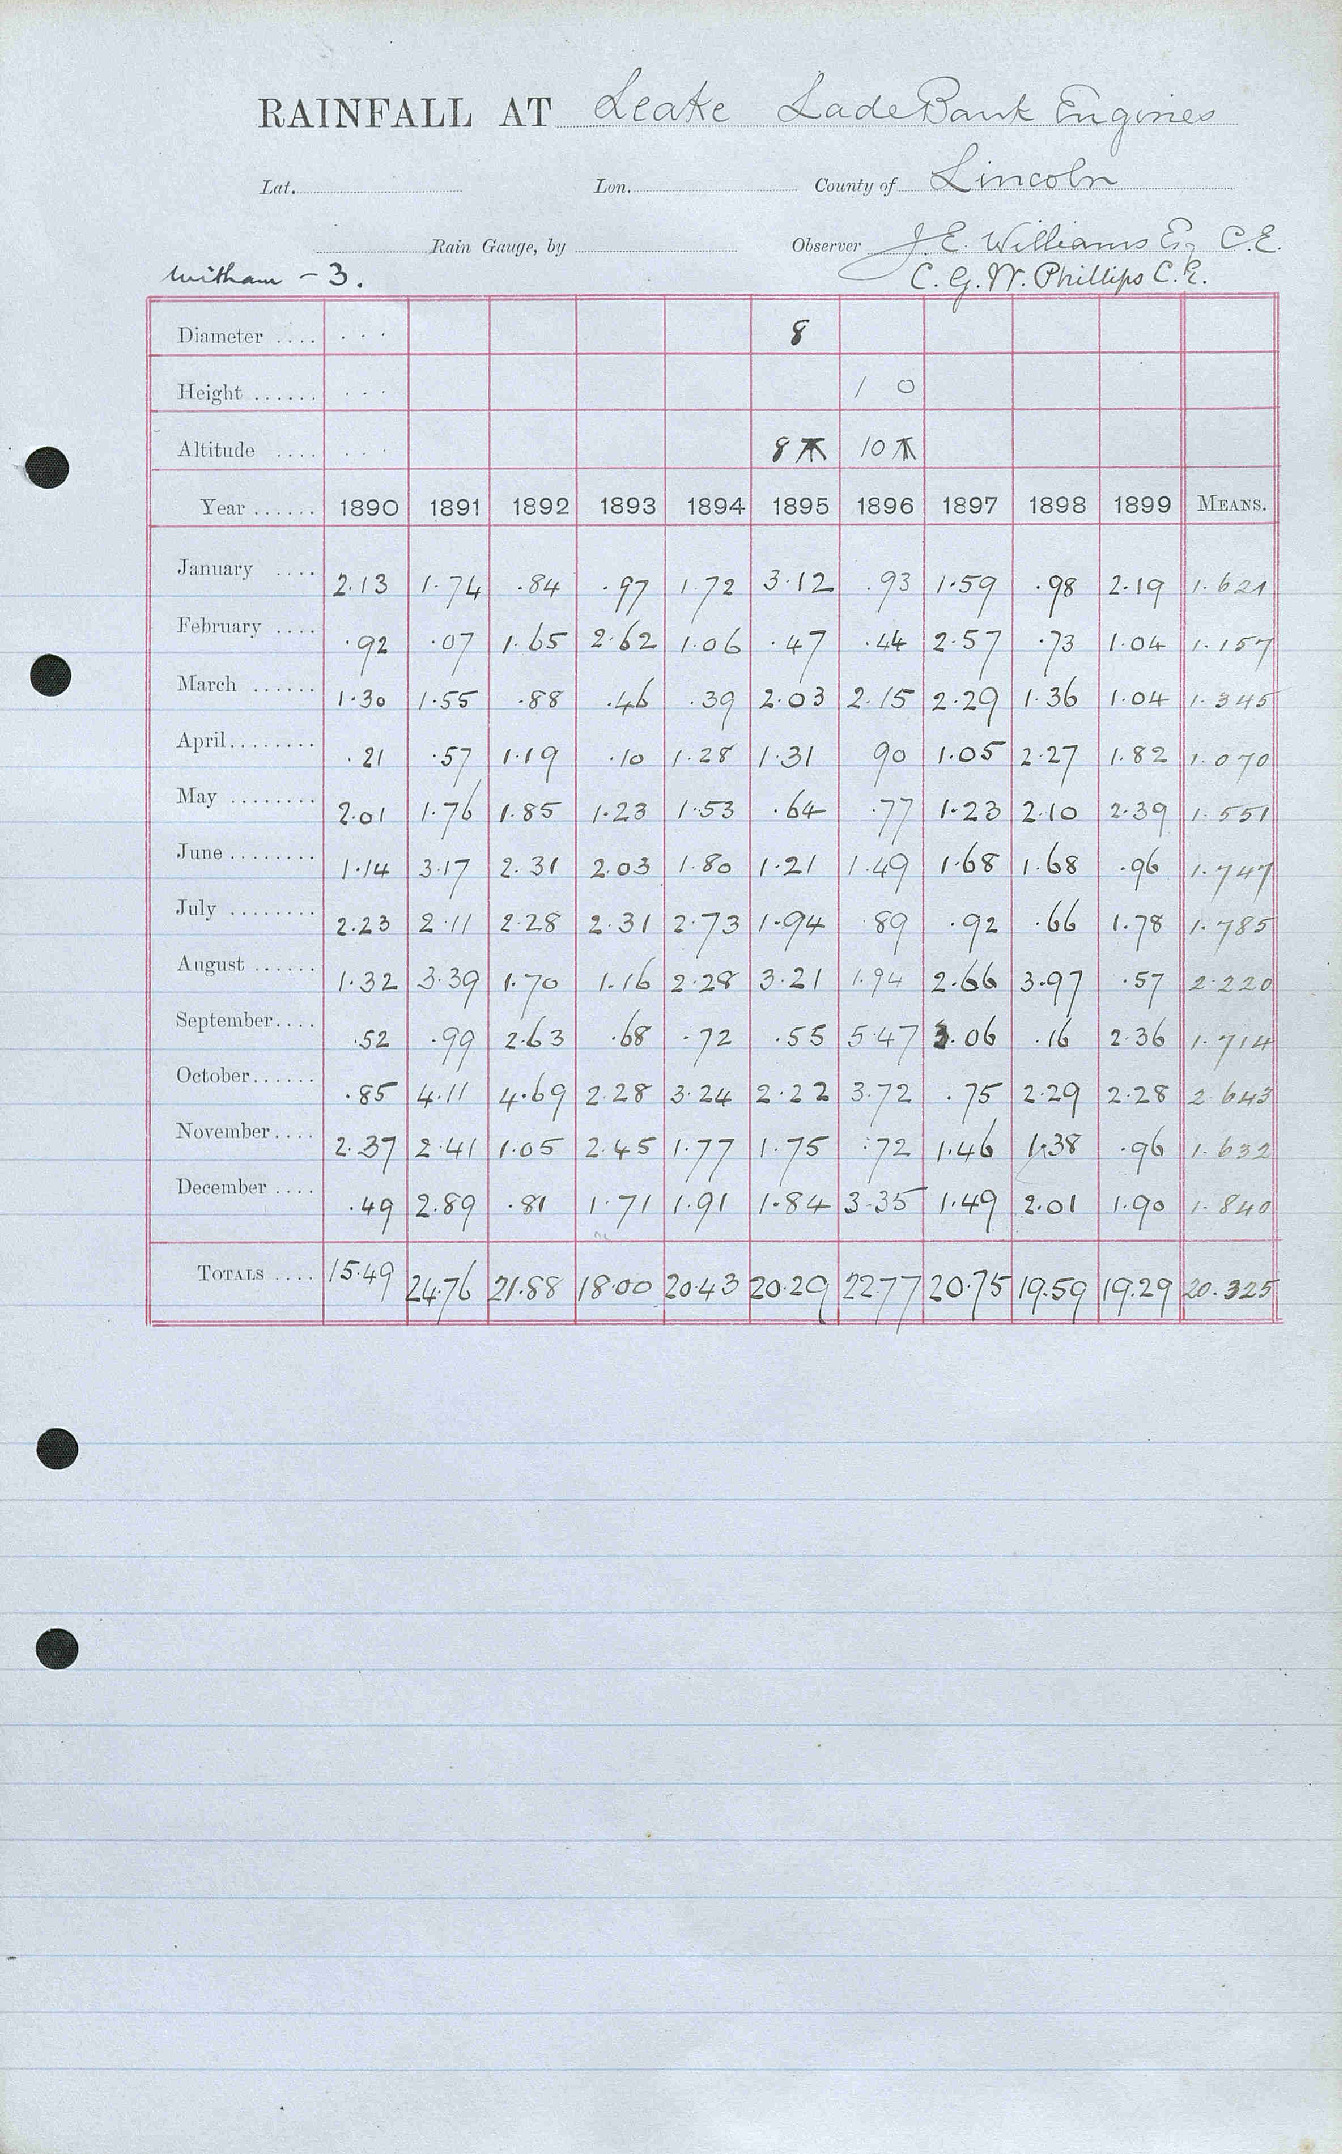 RAINFALL AT Leake Lade Bank Engines
Lat. Lon. County of Lincoln
Rain Gauge, by Observer J.E. Williams Esq C.E.
Witham - 3. C. G. W. Phillips C.E.
Diameter .... ... 8
Height ...... ... 1 0
Altitude .... ... 8 10
Year ...... 1890 1891 1892 1893 1894 1895 1896 1897 1898 1899 MEANS.
January .... 2.13 1.74 .84 .97 1.72 3.12 .93 1.59 .98 2.19 1.621
February .... .92 .07 1.65 2.62 1.06 .47 .44 2.57 .73 1.04 1.157
March ...... 1.30 1.55 .88 .46 .39 2.03 2.15 2.29 1.36 1.04 1.345
April........ .21 .57 1.19 .10 1.28 1.31 90 1.05 2.27 1.82 1.070
May ........ 2.01 1.76 1.85 1.23 1.53 .64 .77 1.23 2.10 2.39 1.551
June........ 1.14 3.17 2.31 2.03 1.80 1.21 1.49 1.68 1.68 .96 1.747
July ........ 2.23 2.11 2.28 2.31 2.73 1.94 .89 .92 .66 1.78 1.785
August ...... 1.32 3.39 1.70 1.16 2.28 3.21 1.94 2.66 3.97 .57 2.220
September.... .52 .99 2.63 .68 .72 .55 5.47 3.06 .16 2.36 1.714
October...... .85 4.11 4.69 2.28 3.24 2.22 3.72 .75 2.29 2.28 2.643
November.... 2.37 2.41 1.05 2.45 1.77 1.75 .72 1.46 1.38 .96 1.632
December .... .49 2.89 .81 1.71 1.91 1.84 3.35 1.49 2.01 1.90 1.840
TOTALS .... 15.49 24.76 21.88 18.00 20.43 20.29 22.77 20.75 19.59 19.29 20.325